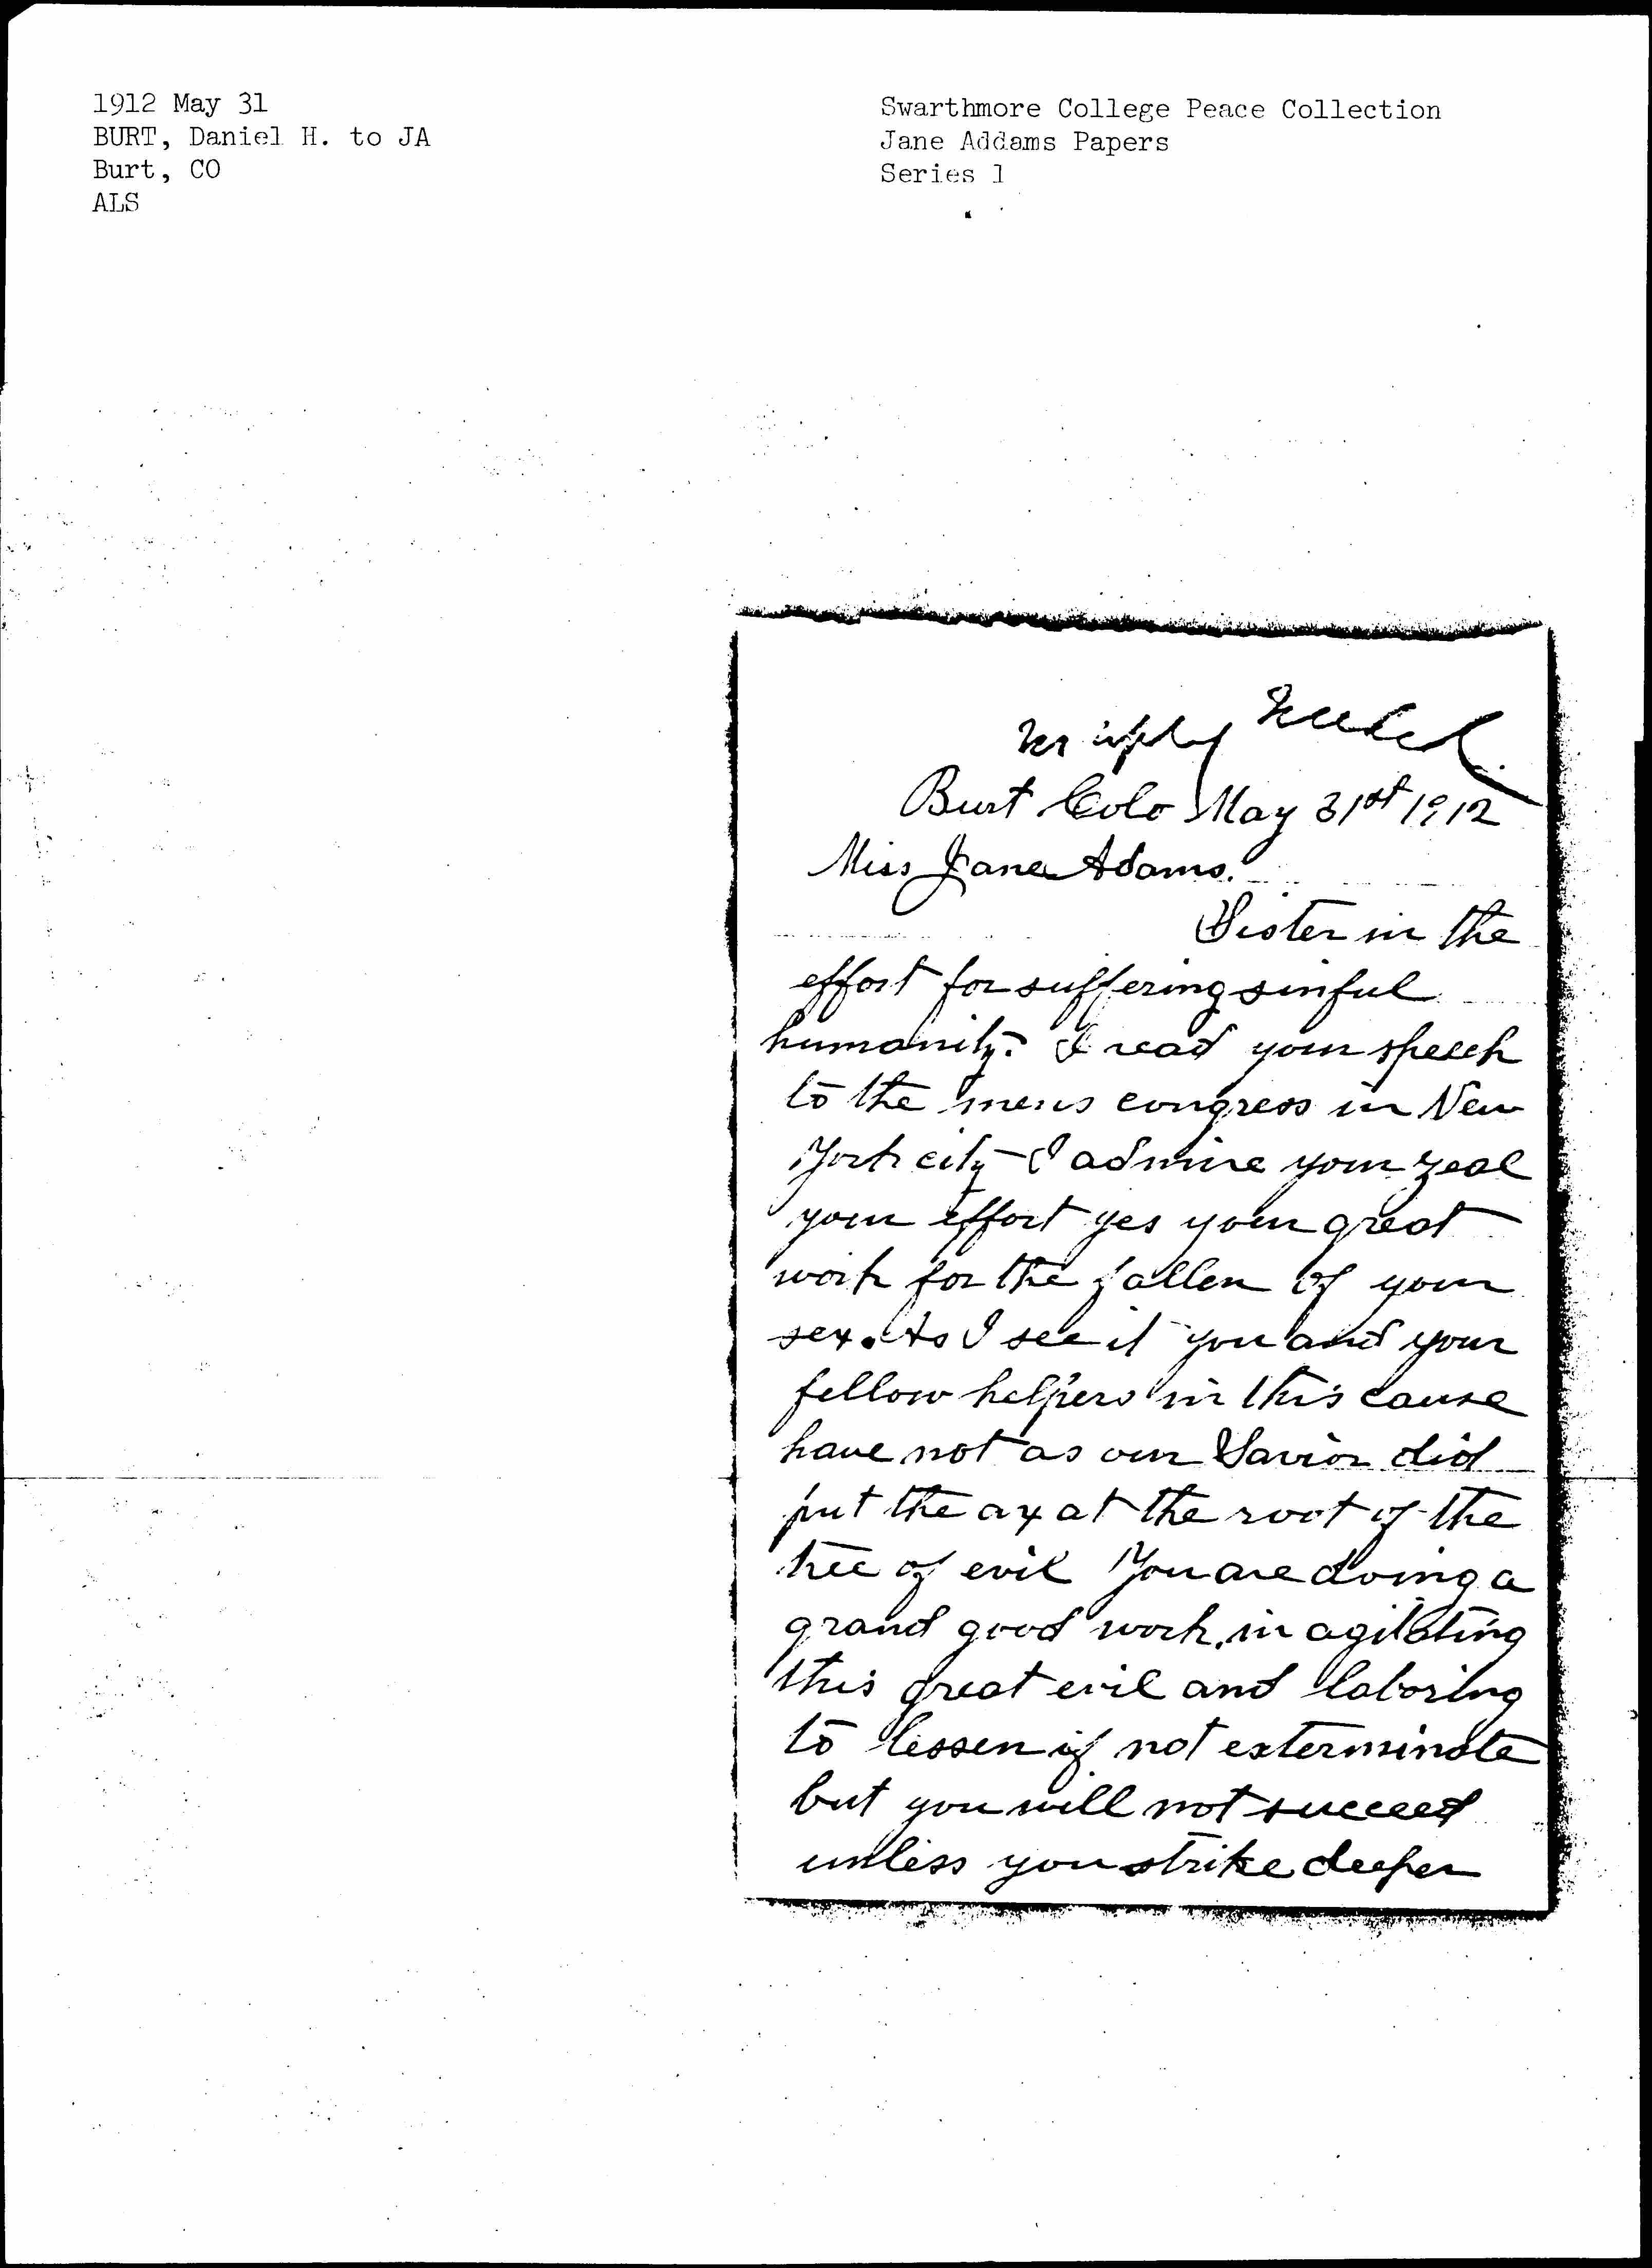 1912 May 31
BURT, Daniel H. to JA
Burt, CO
ALS
Swarthmore College Peace Collection
Jane Addams Papers
Series 1
Burt Colo May 31st 1912
Miss Jane Adams.
Sister in the
effort for suffering sinful
humanity. I read your speech
to the mens congress in New
York city - I admire your zeal
your effort yes your great
work for the fallen of your
sex. As I see it you and your
fellow helpers in this cause
have not as our Savior did
put the ax at the root of the
tree of evil You are doing a
grand good work, in agitating
this great evil and laboring
to lessen if not exterminate
but you will not succeed
unless you strike deeper